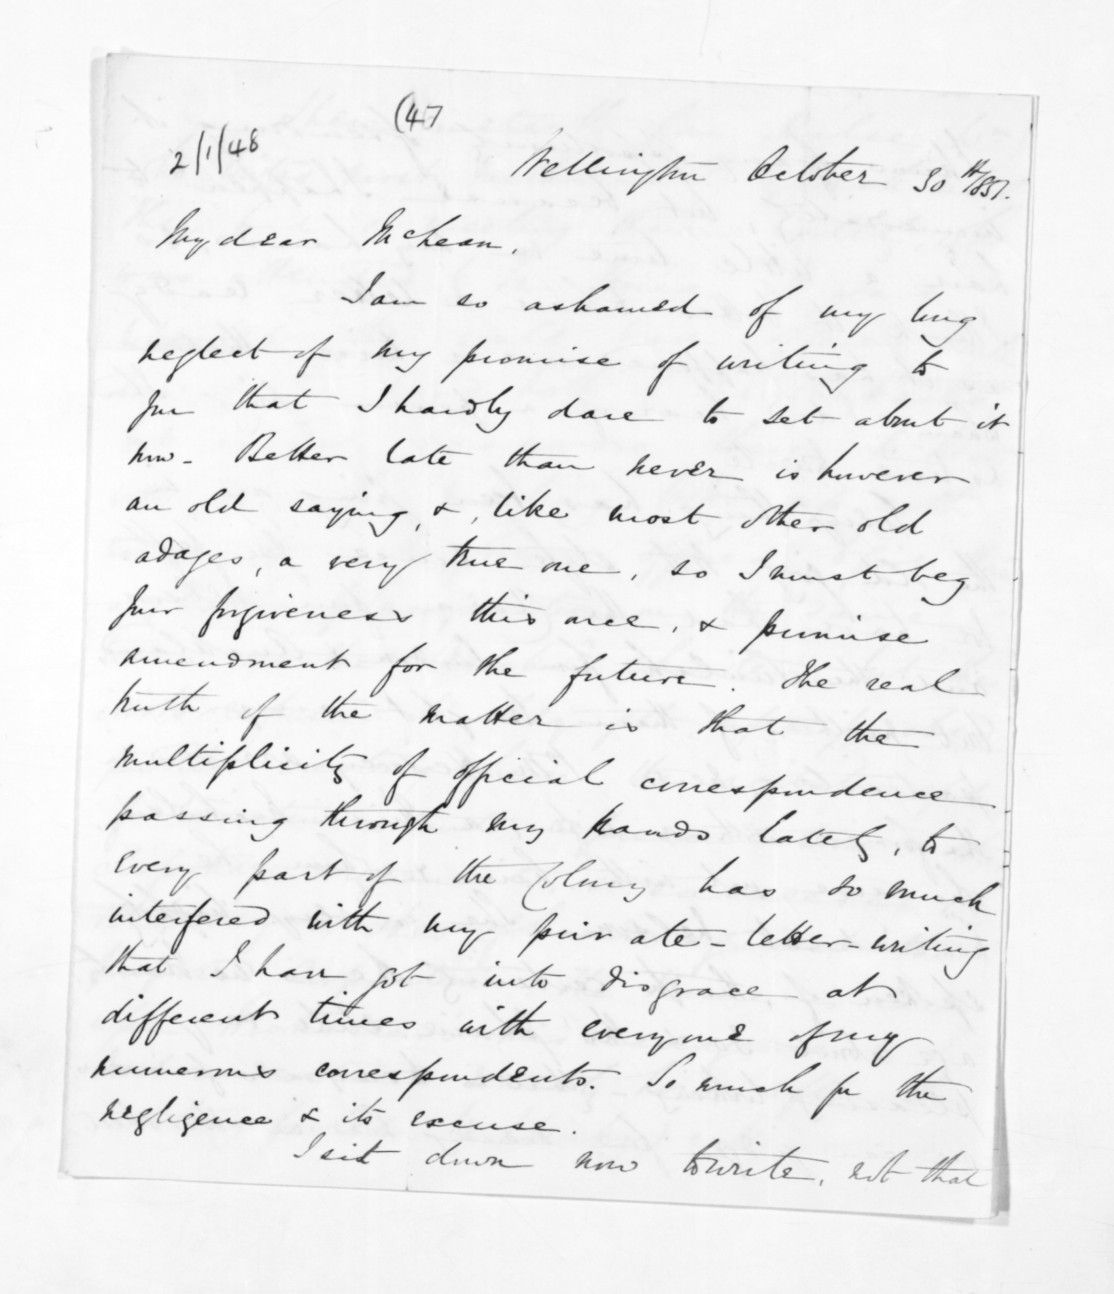 (47
2/1/48
Wellington October 30th 1851.
My dear McLean,
I am so ashamed of my long
neglect of my promise of writing to
you that I hardly dare to set about it
now - Better late than never is however
an old saying, &, like most other old
adages, a very true one, so I must beg
your forgiveness this once, & promise
amendment for the future. The real
truth of the matter is that the
multiplicity of official correspondence
passing through my hands lately, to
every part of the Colony has so much
interfered with my private-letter-writing
that I have got into disgrace at
different times with everyone of my
numerous correspondents. So much for the
negligence & its excuse.
I sit down now to write, not that